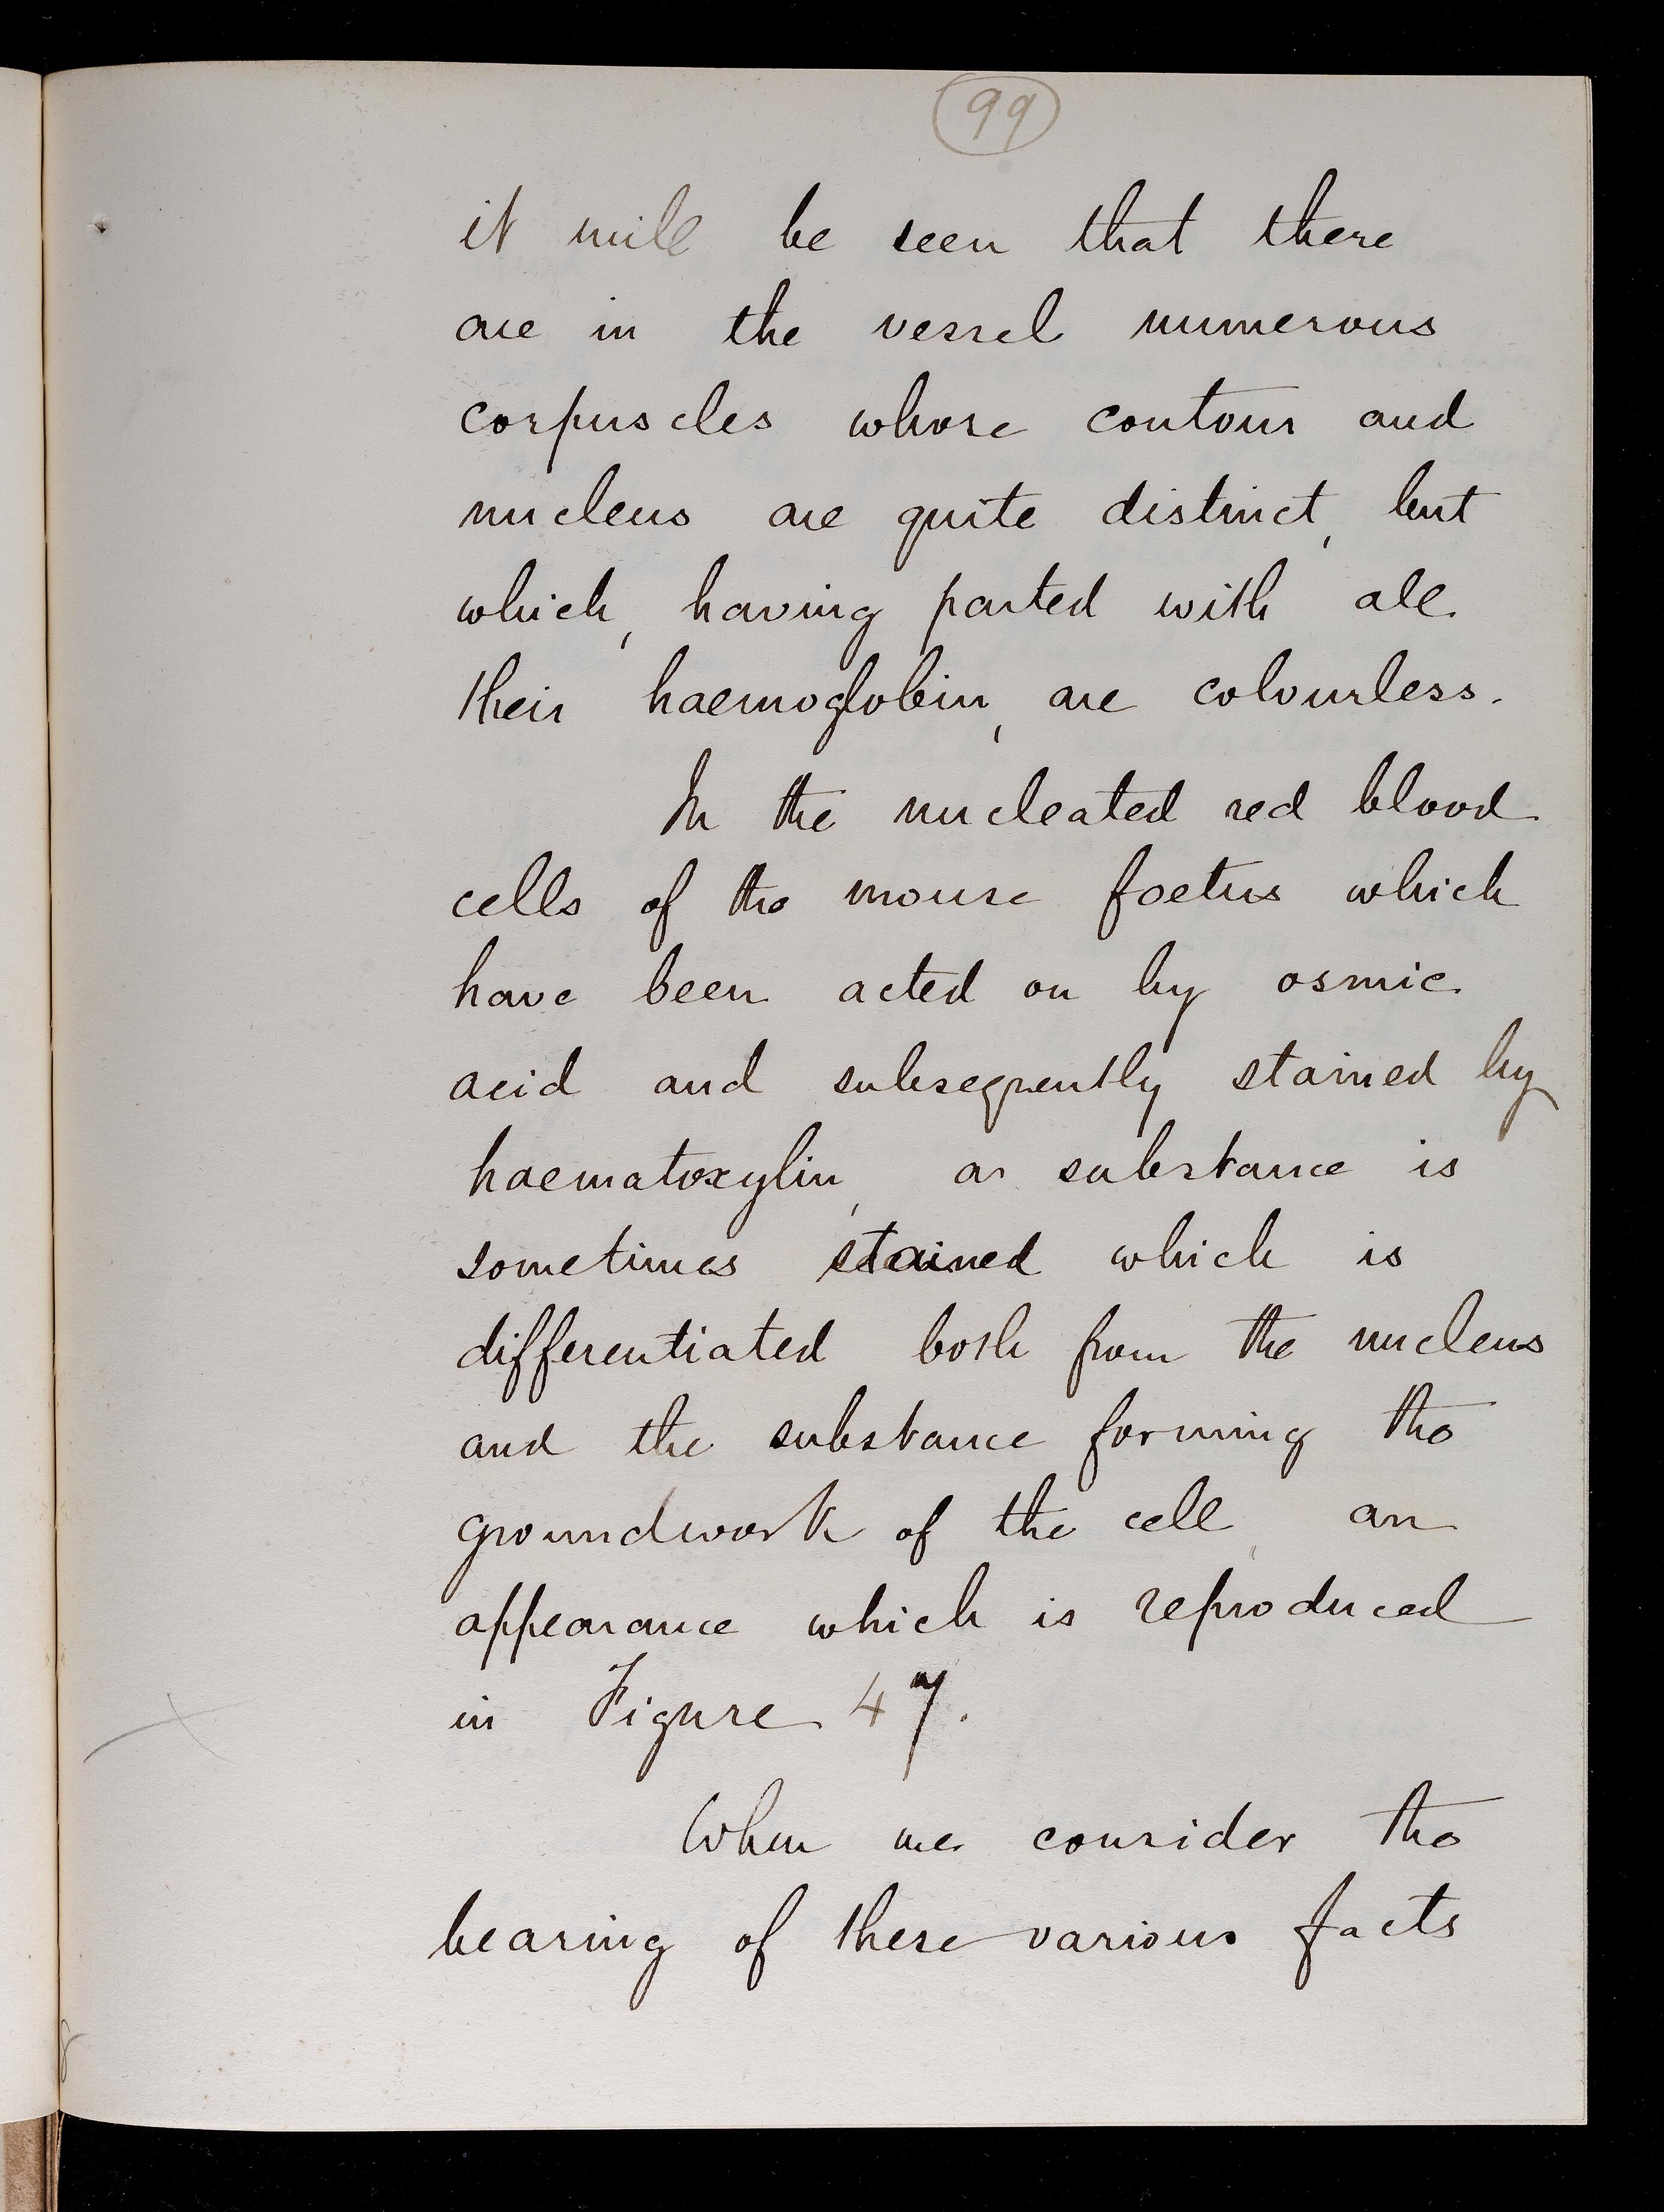 99
it will be seen that there
are in the vessel numerous
corpuscles whose contour and
nucleus are quite distinct, but
which, having parted with all
their haemoglobin, are colourless.
In the nucleated red blood
cells of the mouse foetus which
have been acted on by osmic
acid and subsequently stained by
haematoxylin, a substance is
sometimes stained which is
differentiated both from the nucleus
and the substance forming the
groundwork of the cell, an
appearance which is reproduced
in Figure 47.
When we consider the
bearing of these various facts